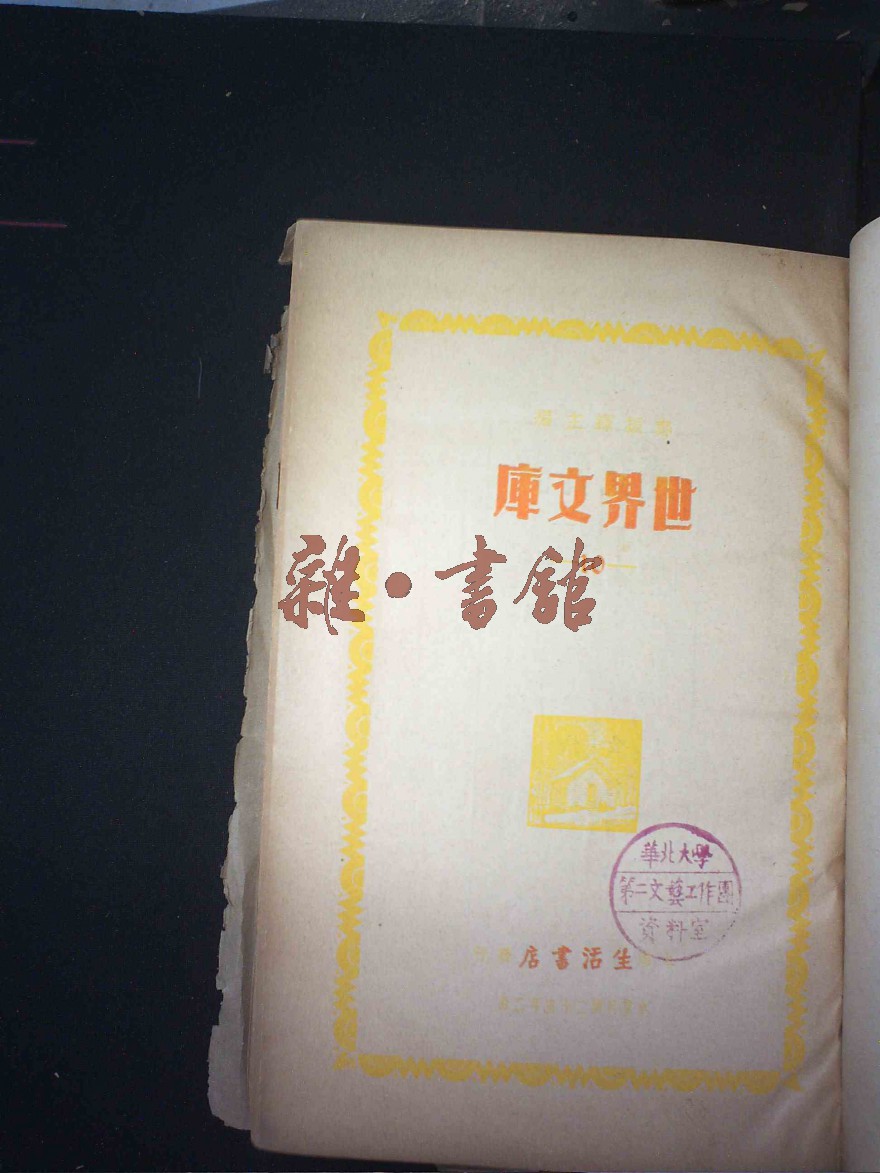 鄭振鐸主編
世界文庫
雜•書館
華北大學
第二文藝工作團
資料室
生活書店